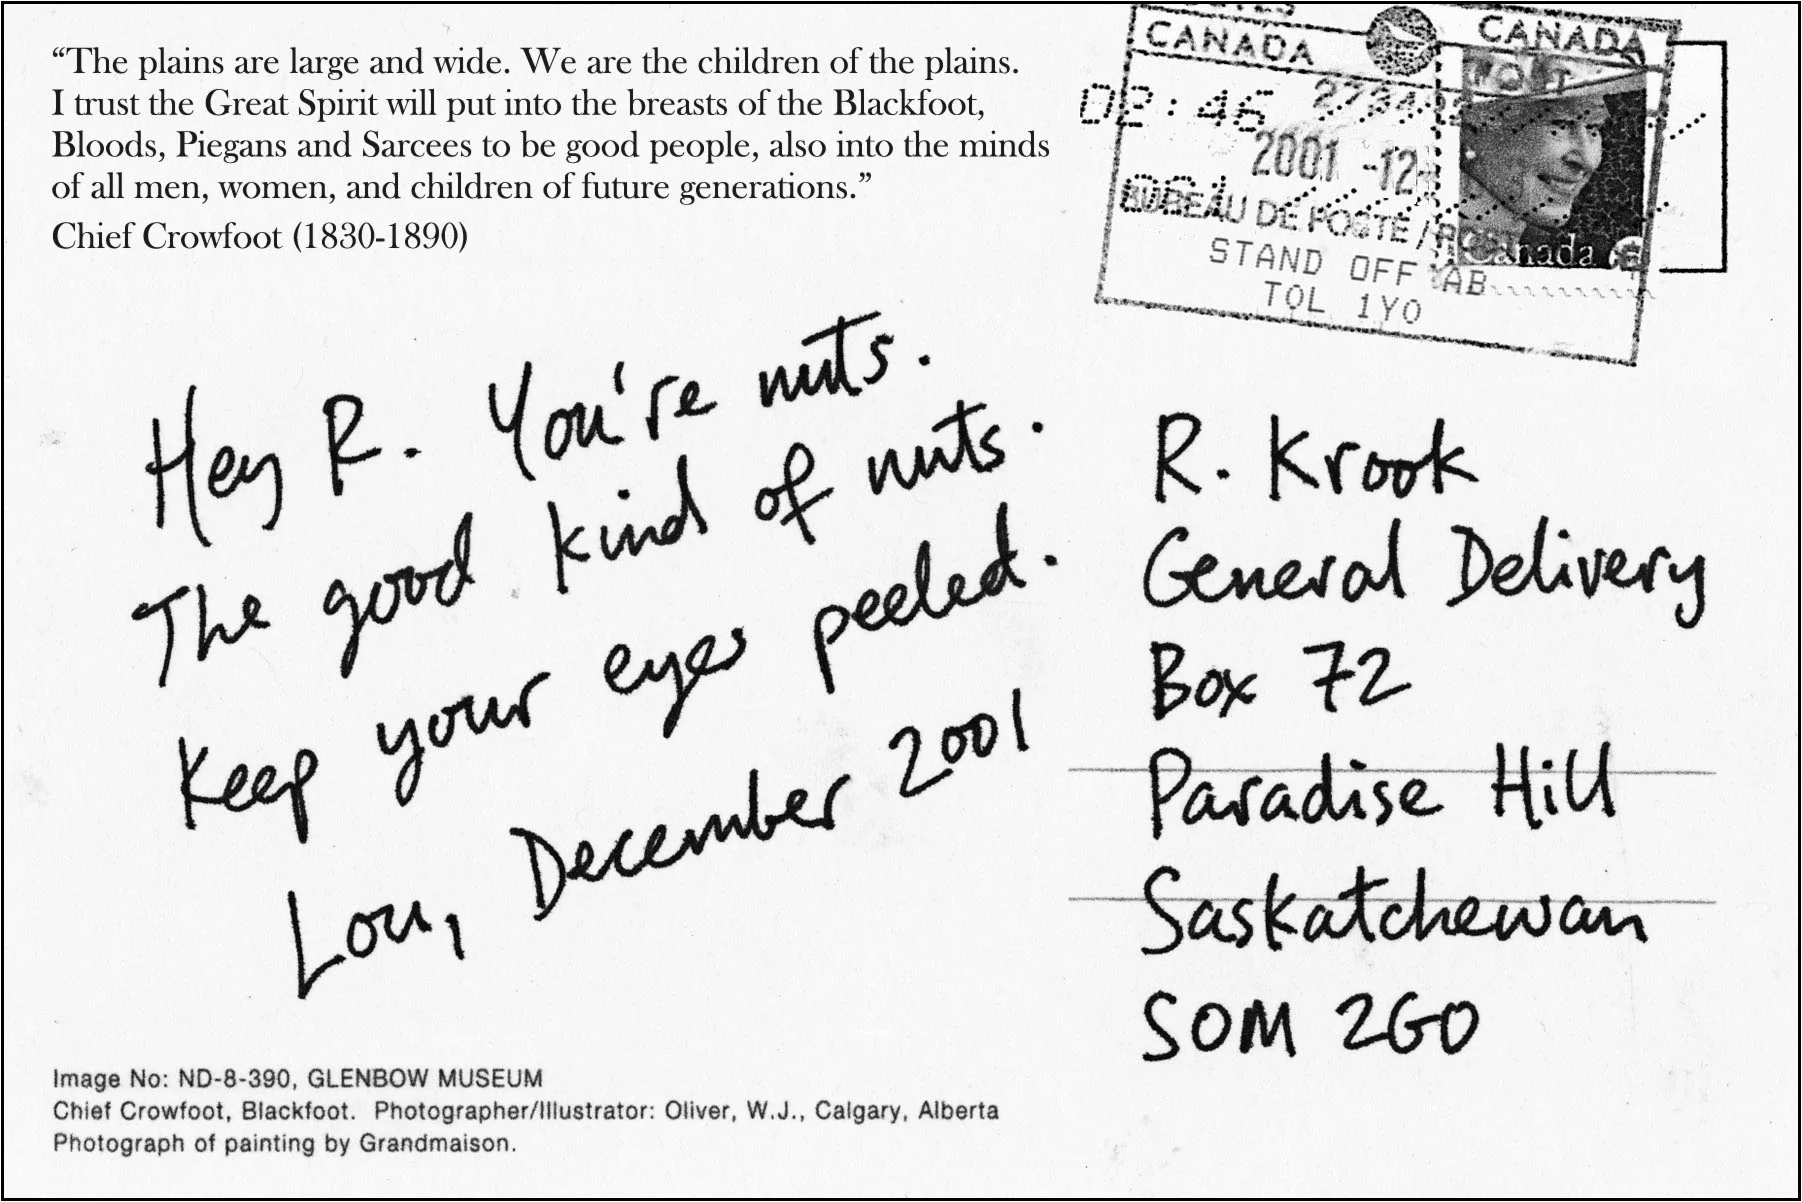 “The plains are large and wide. We are the children of the plains.
I trust the Great Spirit will put into the breasts of the Blackfoot,
Bloods, Piegans and Sarcees to be good people, also into the minds
of all men, women, and children of future generations.”
Chief Crowfoot (1830-1890)
CANADA
CANADA
POST
02:46
2001 -12-
BUREAU DE POSTE /
Canada
STAND OFF AB
TOL 1Y0
Hey R. You're nuts.
The good kind of nuts.
Keep your eyes peeled.
Lou, December 2001
R. Krook
General Delivery
Box 72
Paradise Hill
Saskatchewan
SOM 2GO
Image No: ND-8-390, GLENBOW MUSEUM
Chief Crowfoot, Blackfoot. Photographer/Illustrator: Oliver, W.J., Calgary, Alberta
Photograph of painting by Grandmaison.